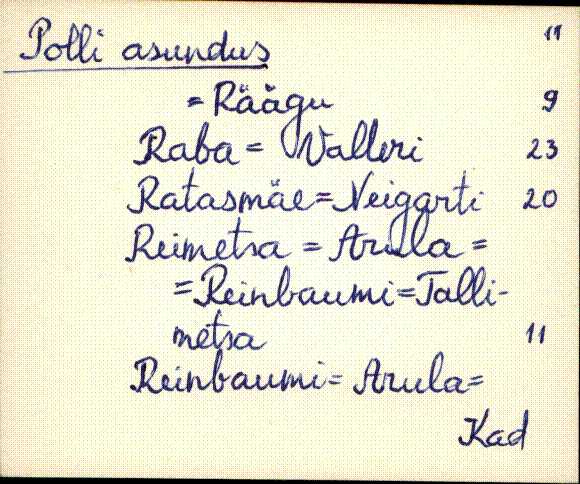 Polli asundus "
= Räägu 9
Raba = Valleri 23
Ratasmäe = Neigarti 20
Reimetsa = Arula =
= Reinbaumi = Talli-
metsa 11
Reinbaumi = Arula =
Kad